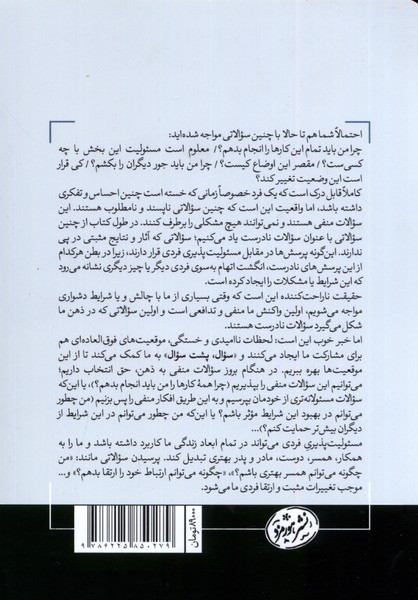 احتمالاً شما هم تا حالا با چنین سؤالاتی مواجه شده‌اید:
چرا من باید تمام این کارها را انجام بدهم؟/ معلوم است مسئولیت این بخش با چه
کسی‌ست؟/ مقصر این اوضاع کیست؟/ چرا من باید جور دیگران را بکشم؟/ کی قرار
است این وضعیت تغییر کند؟
کاملاً قابل درک است که یک فرد خصوصاً زمانی که خسته است چنین احساس و تفکری
داشته باشد، اما واقعیت این است که چنین سؤالاتی ناپسند و نامطلوب هستند. این
سؤالات منفی هستند و نمی‌توانند هیچ مشکلی را برطرف کنند. در طول کتاب از چنین
سؤالاتی با عنوان سؤالات نادرست یاد می‌کنیم؛ سؤالاتی که آثار و نتایج مثبتی در پی
ندارند. این‌گونه پرسش‌ها در مقابل مسئولیت‌پذیری فردی قرار دارند، زیرا در بطن هرکدام
از این پرسش‌های نادرست، انگشت اتهام به‌سوی فردی دیگر یا چیز دیگری نشانه می‌رود
که این شرایط یا مشکلات را ایجاد کرده است.
حقیقت ناراحت‌کننده این است که وقتی بسیاری از ما با چالش و یا شرایط دشواری
مواجه می‌شویم، اولین واکنش ما منفی و تدافعی است و اولین سؤالاتی که در ذهن ما
شکل می‌گیرد سؤالات نادرست هستند.
اما خبر خوب این است: لحظات ناامیدی و خستگی، موقعیت‌های فوق‌العاده‌ای هم
برای مشارکت ما ایجاد می‌کنند و «سؤال، پشت سؤال» به ما کمک می‌کند تا از این
موقعیت‌ها بهره ببریم. در هنگام بروز سؤالات منفی به ذهن، حق انتخاب داریم؛
می‌توانیم این سؤالات منفی را بپذیریم (چرا همهٔ کارها را من باید انجام بدهم؟)، یا این‌که
سؤالات مسئولانه‌تری از خودمان بپرسیم و به این طریق افکار منفی را پس بزنیم (من چطور
می‌توانم در بهبود این شرایط مؤثر باشم؟ یا این‌که من چطور می‌توانم در این شرایط از
دیگران بیش‌تر حمایت کنم؟)...
مسئولیت‌پذیری فردی می‌تواند در تمام ابعاد زندگی ما کاربرد داشته باشد و ما را به
همکار، همسر، دوست، مادر و پدر بهتری تبدیل کند. پرسیدن سؤالاتی مانند: «من
چگونه می‌توانم همسر بهتری باشم؟»، «چگونه می‌توانم ارتباط خود را ارتقا بدهم؟» و...
موجب تغییرات مثبت و ارتقا فردی ما می‌شود.
نشر هورمزد
9 786225 850279